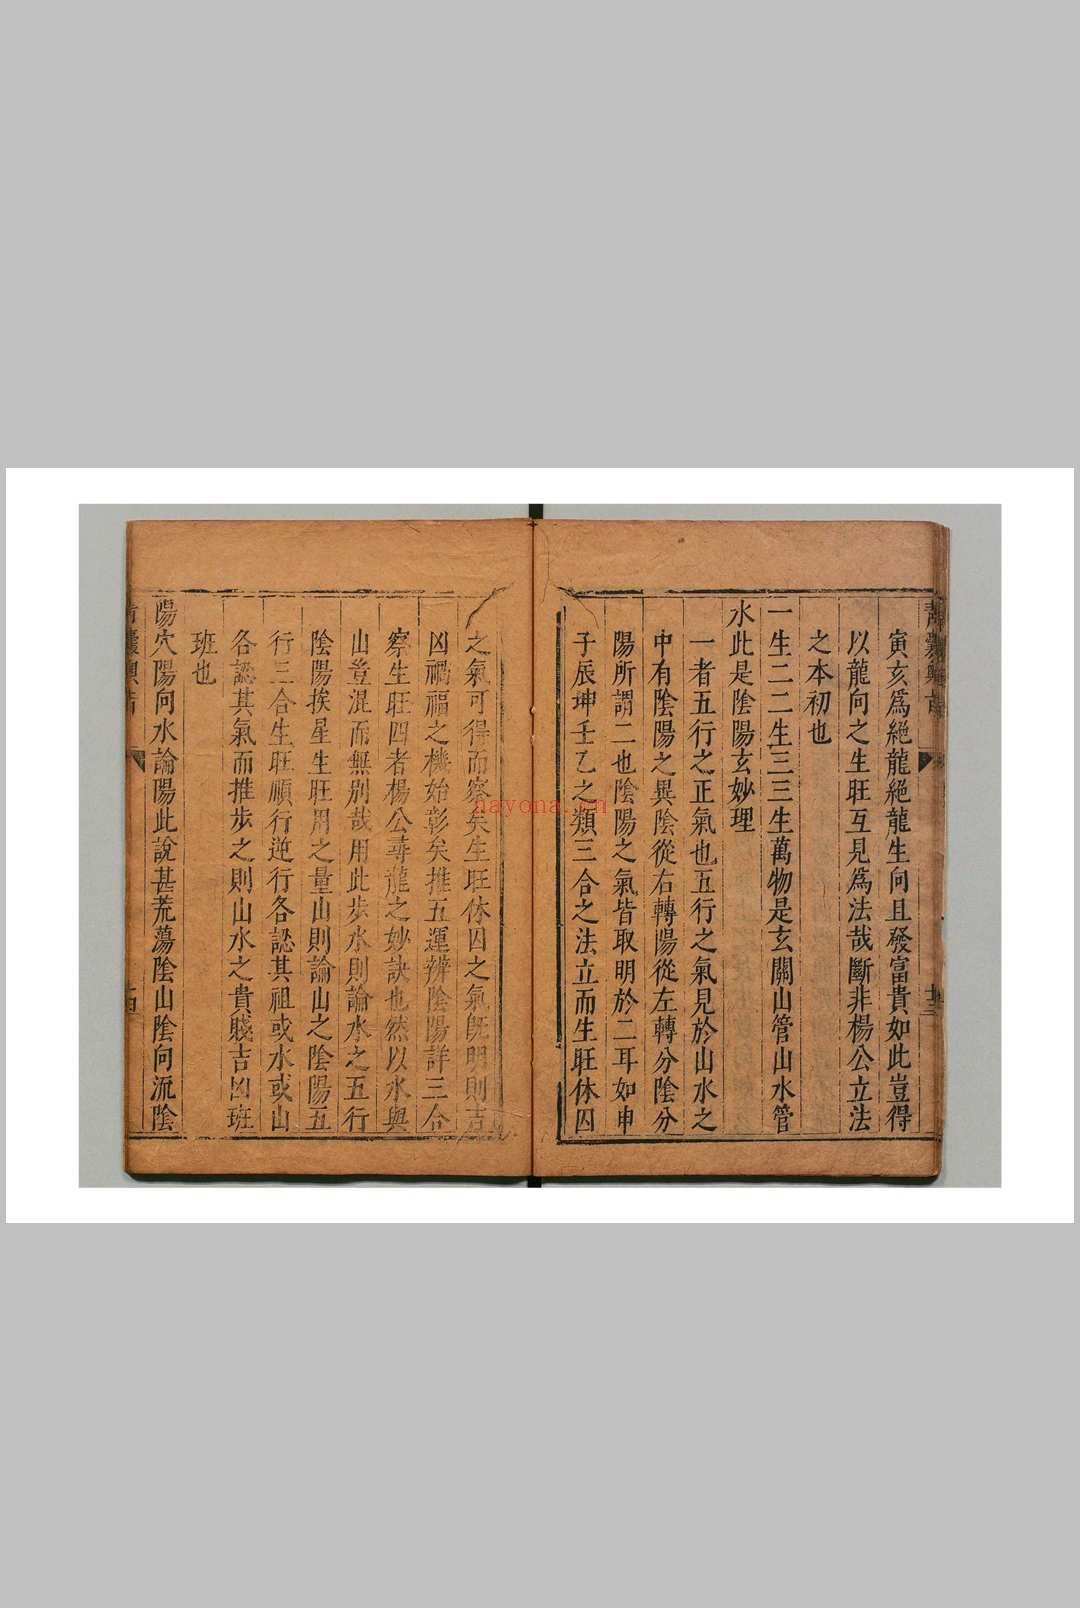 寅亥爲絕龍絕龍生向且發富貴如此豈得
以龍向之生旺互見爲法哉斷非楊公立法
之本初也
一生二二生三三生萬物是玄關山管山水管
水此是陰陽玄妙理
一者五行之正氣也五行之氣見於山水之
中有陰陽之異陰從右轉陽從左轉分陰分
陽所謂二也陰陽之氣皆取明於二耳如申
子辰坤壬乙之類三合之法立而生旺休囚
之氣可得而察矣生旺休囚之氣旣明則吉
凶禍福之機始彰矣推五運辨陰陽詳三合
察生旺四者楊公尋龍之妙訣也然以水與
山豈混而無別哉用此步水則論水之五行
陰陽挨星生旺用之量山則論山之陰陽五
行三合生旺順行逆行各認其祖或水或山
各認其氣而推步之則山水之貴賤吉凶班
班也
陽穴陽向水論陽此說甚荒蕩陰山陰向流陰
nayona.cn